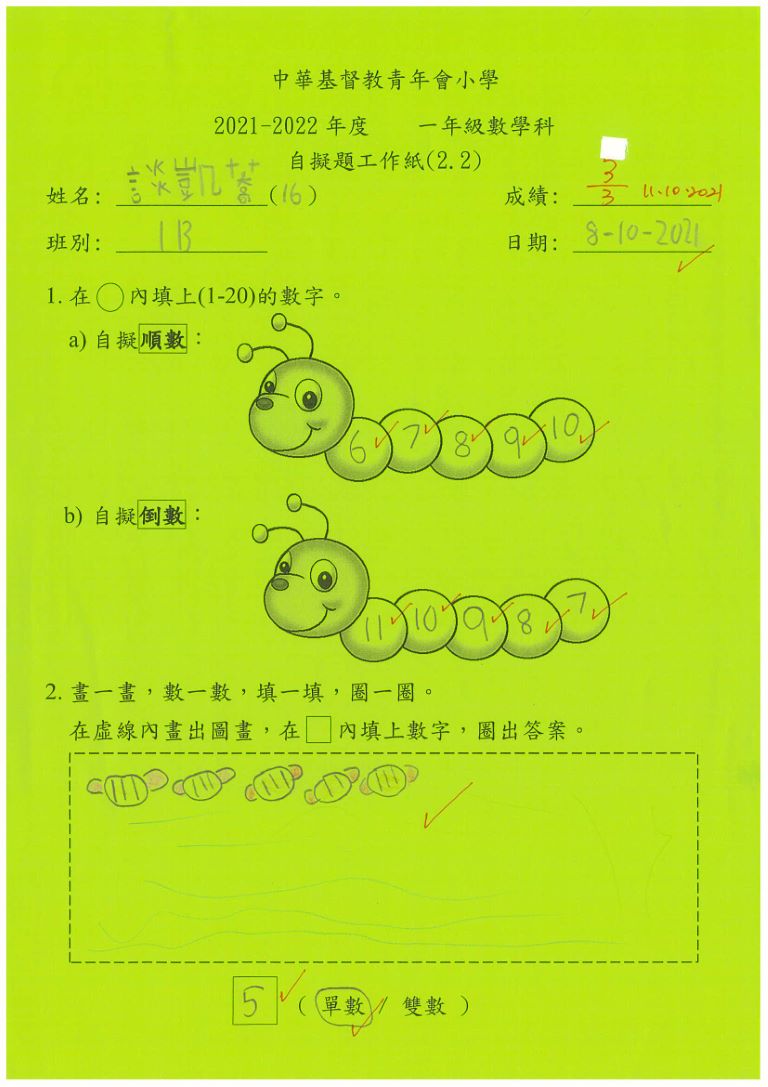 中華基督教青年會小學
2021-2022 年度 一年級數學科
自擬題工作紙(2.2)
姓名: 談凱喬(16) 成績: 3/3 11.10.2021
班別: 1B 日期: 8-10-2021
1. 在○內填上(1-20)的數字。
a) 自擬順數：
6 7 8 9 10
b) 自擬倒數：
11 10 9 8 7
2. 畫一畫，數一數，填一填，圈一圈。
在虛線內畫出圖畫，在□內填上數字，圈出答案。
5 ( 單數 / 雙數 )